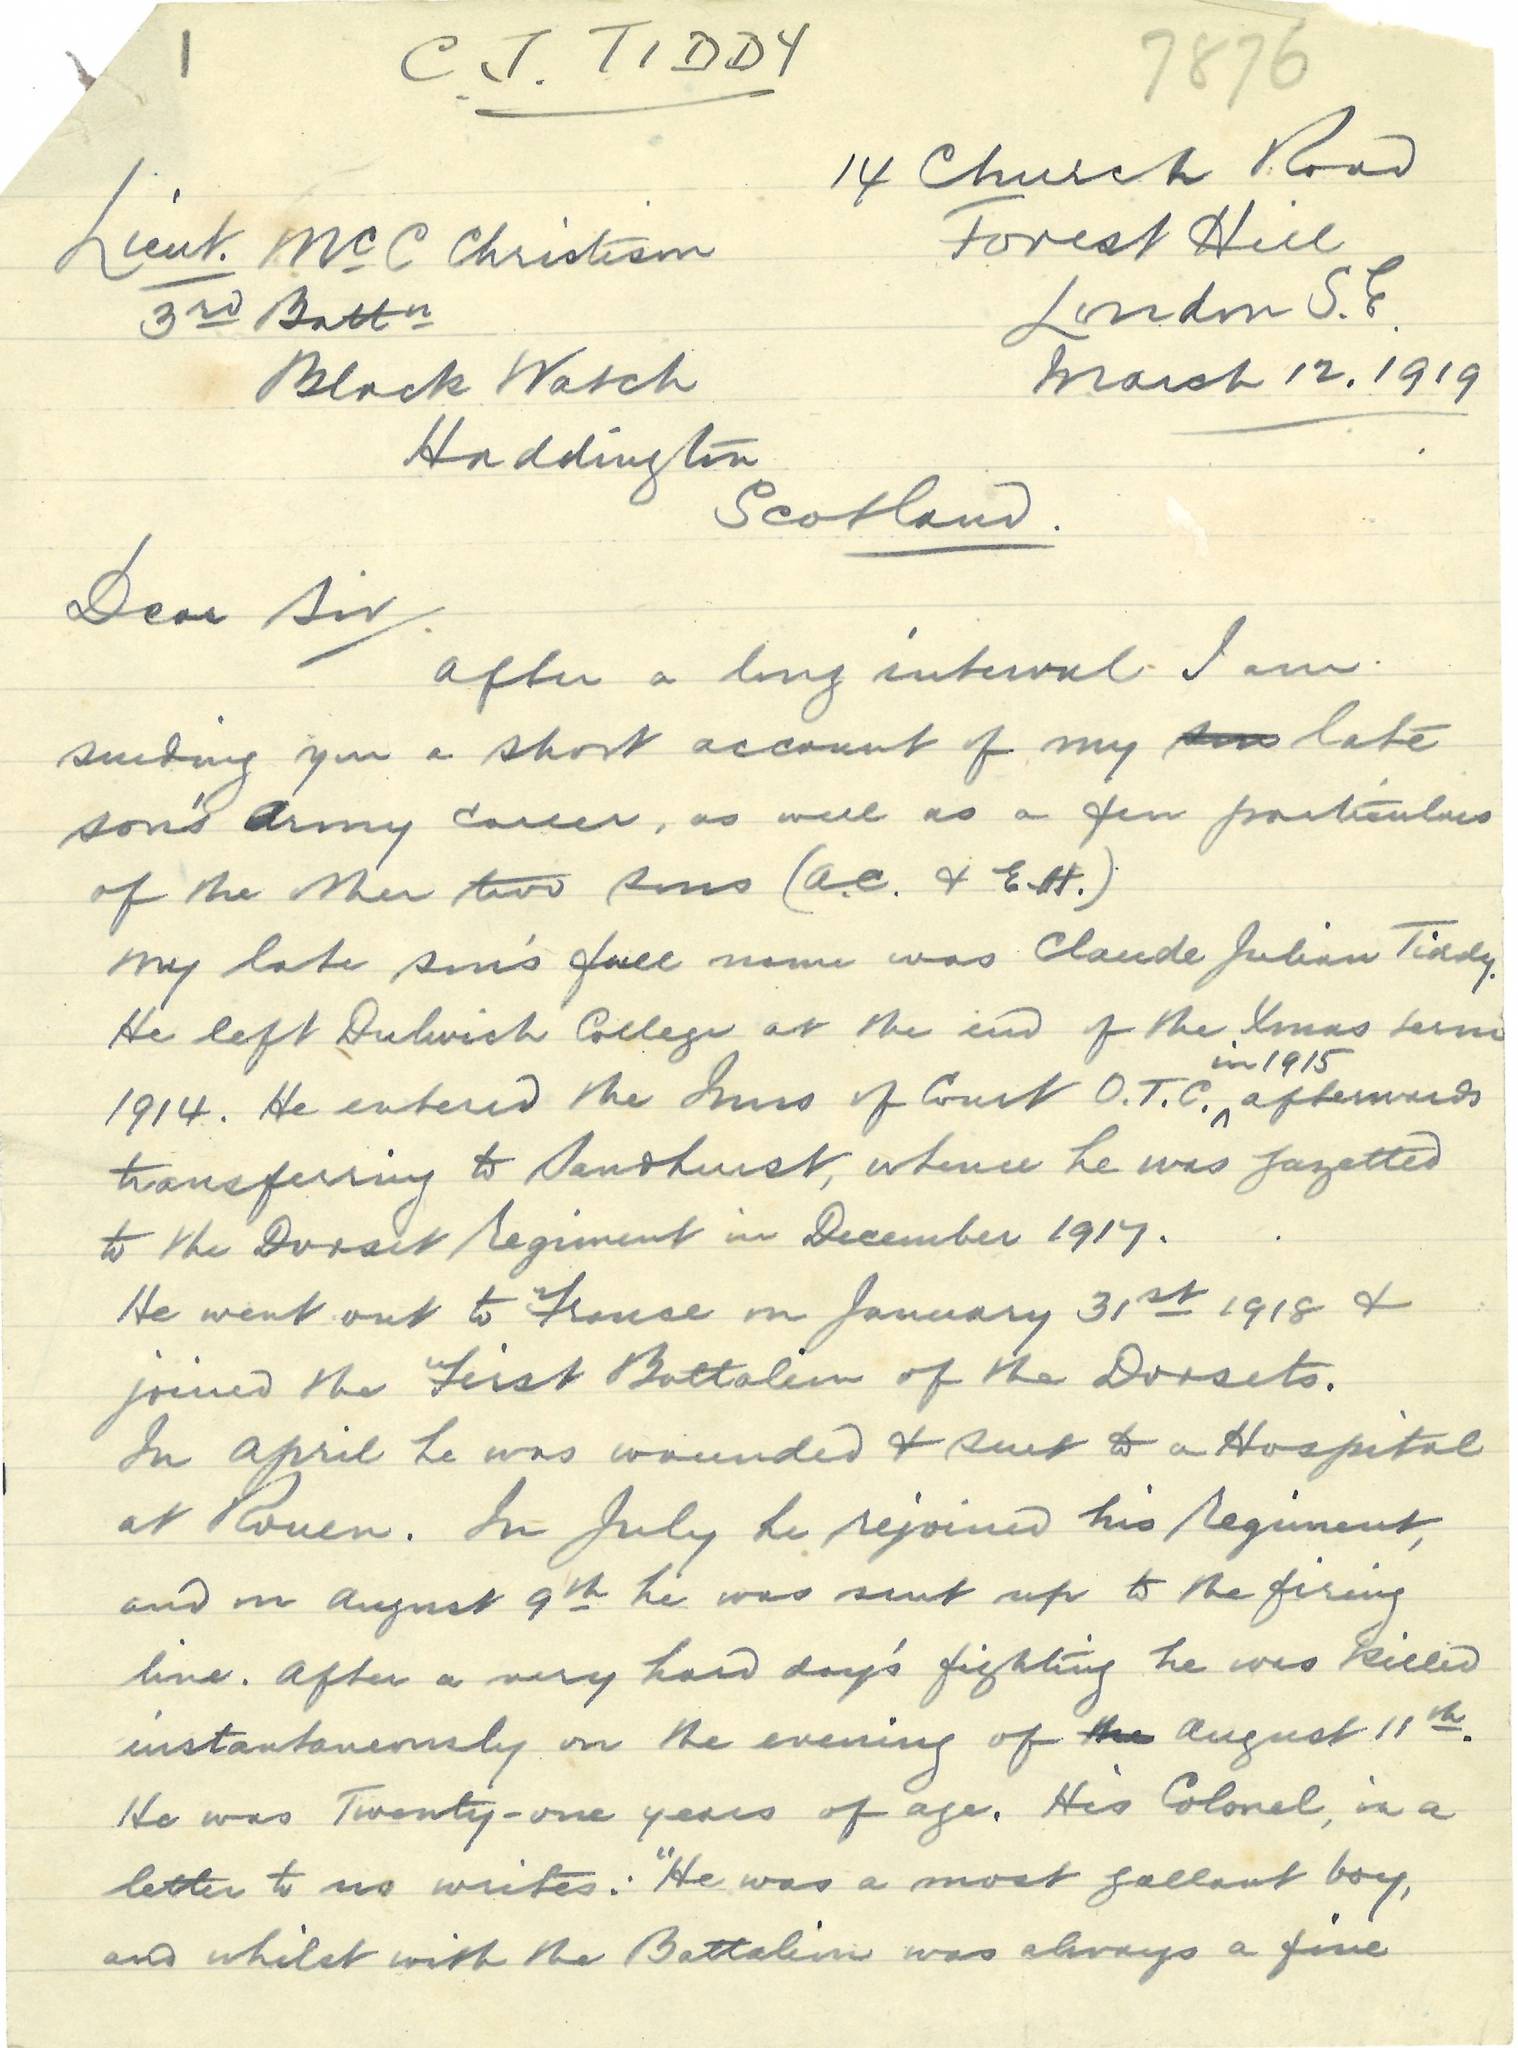 1
C. J. TIDDY
7876
14 Church Road
Forest Hill
London S.E.
March 12. 1919
Lieut. McC Christison
3rd Battn
Black Watch
Haddington
Scotland.
Dear Sir,
After a long interval I am
sending you a short account of my son late
son's army career, as well as a few particulars
of the other two sons (A.C. & E.H.)
My late son's full name was Claude Julian Tiddy.
He left Dulwich College at the end of the Xmas term
1914. He entered the Inns of Court O.T.C. in 1915 afterwards
transferring to Sandhurst, whence he was gazetted
to the Dorset Regiment in December 1917.
He went out to France on January 31st 1918 &
joined the First Battalion of the Dorsets.
In April he was wounded & sent to a Hospital
at Rouen. In July he rejoined his Regiment,
and on August 9th he was sent up to the firing
line. After a very hard day's fighting he was killed
instantaneously on the evening of the August 11th.
He was Twenty-one years of age. His Colonel, in a
letter to us writes: "He was a most gallant boy,
and whilst with the Battalion was always a fine